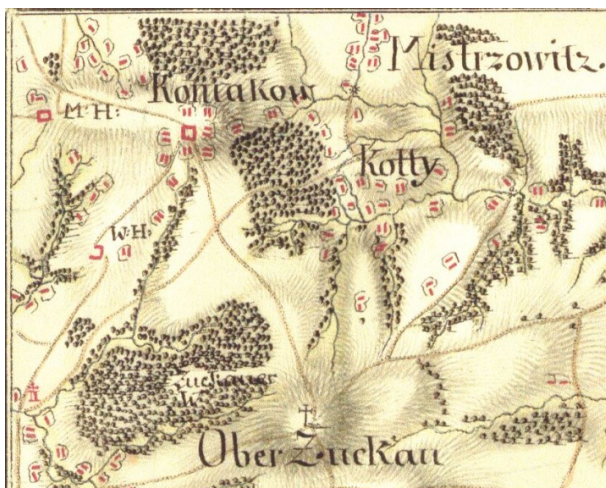 Mistrzowitz.
Koniakow
M: H:
Kotty
W: H:
Zuckauer
W.
Ober Zuckau